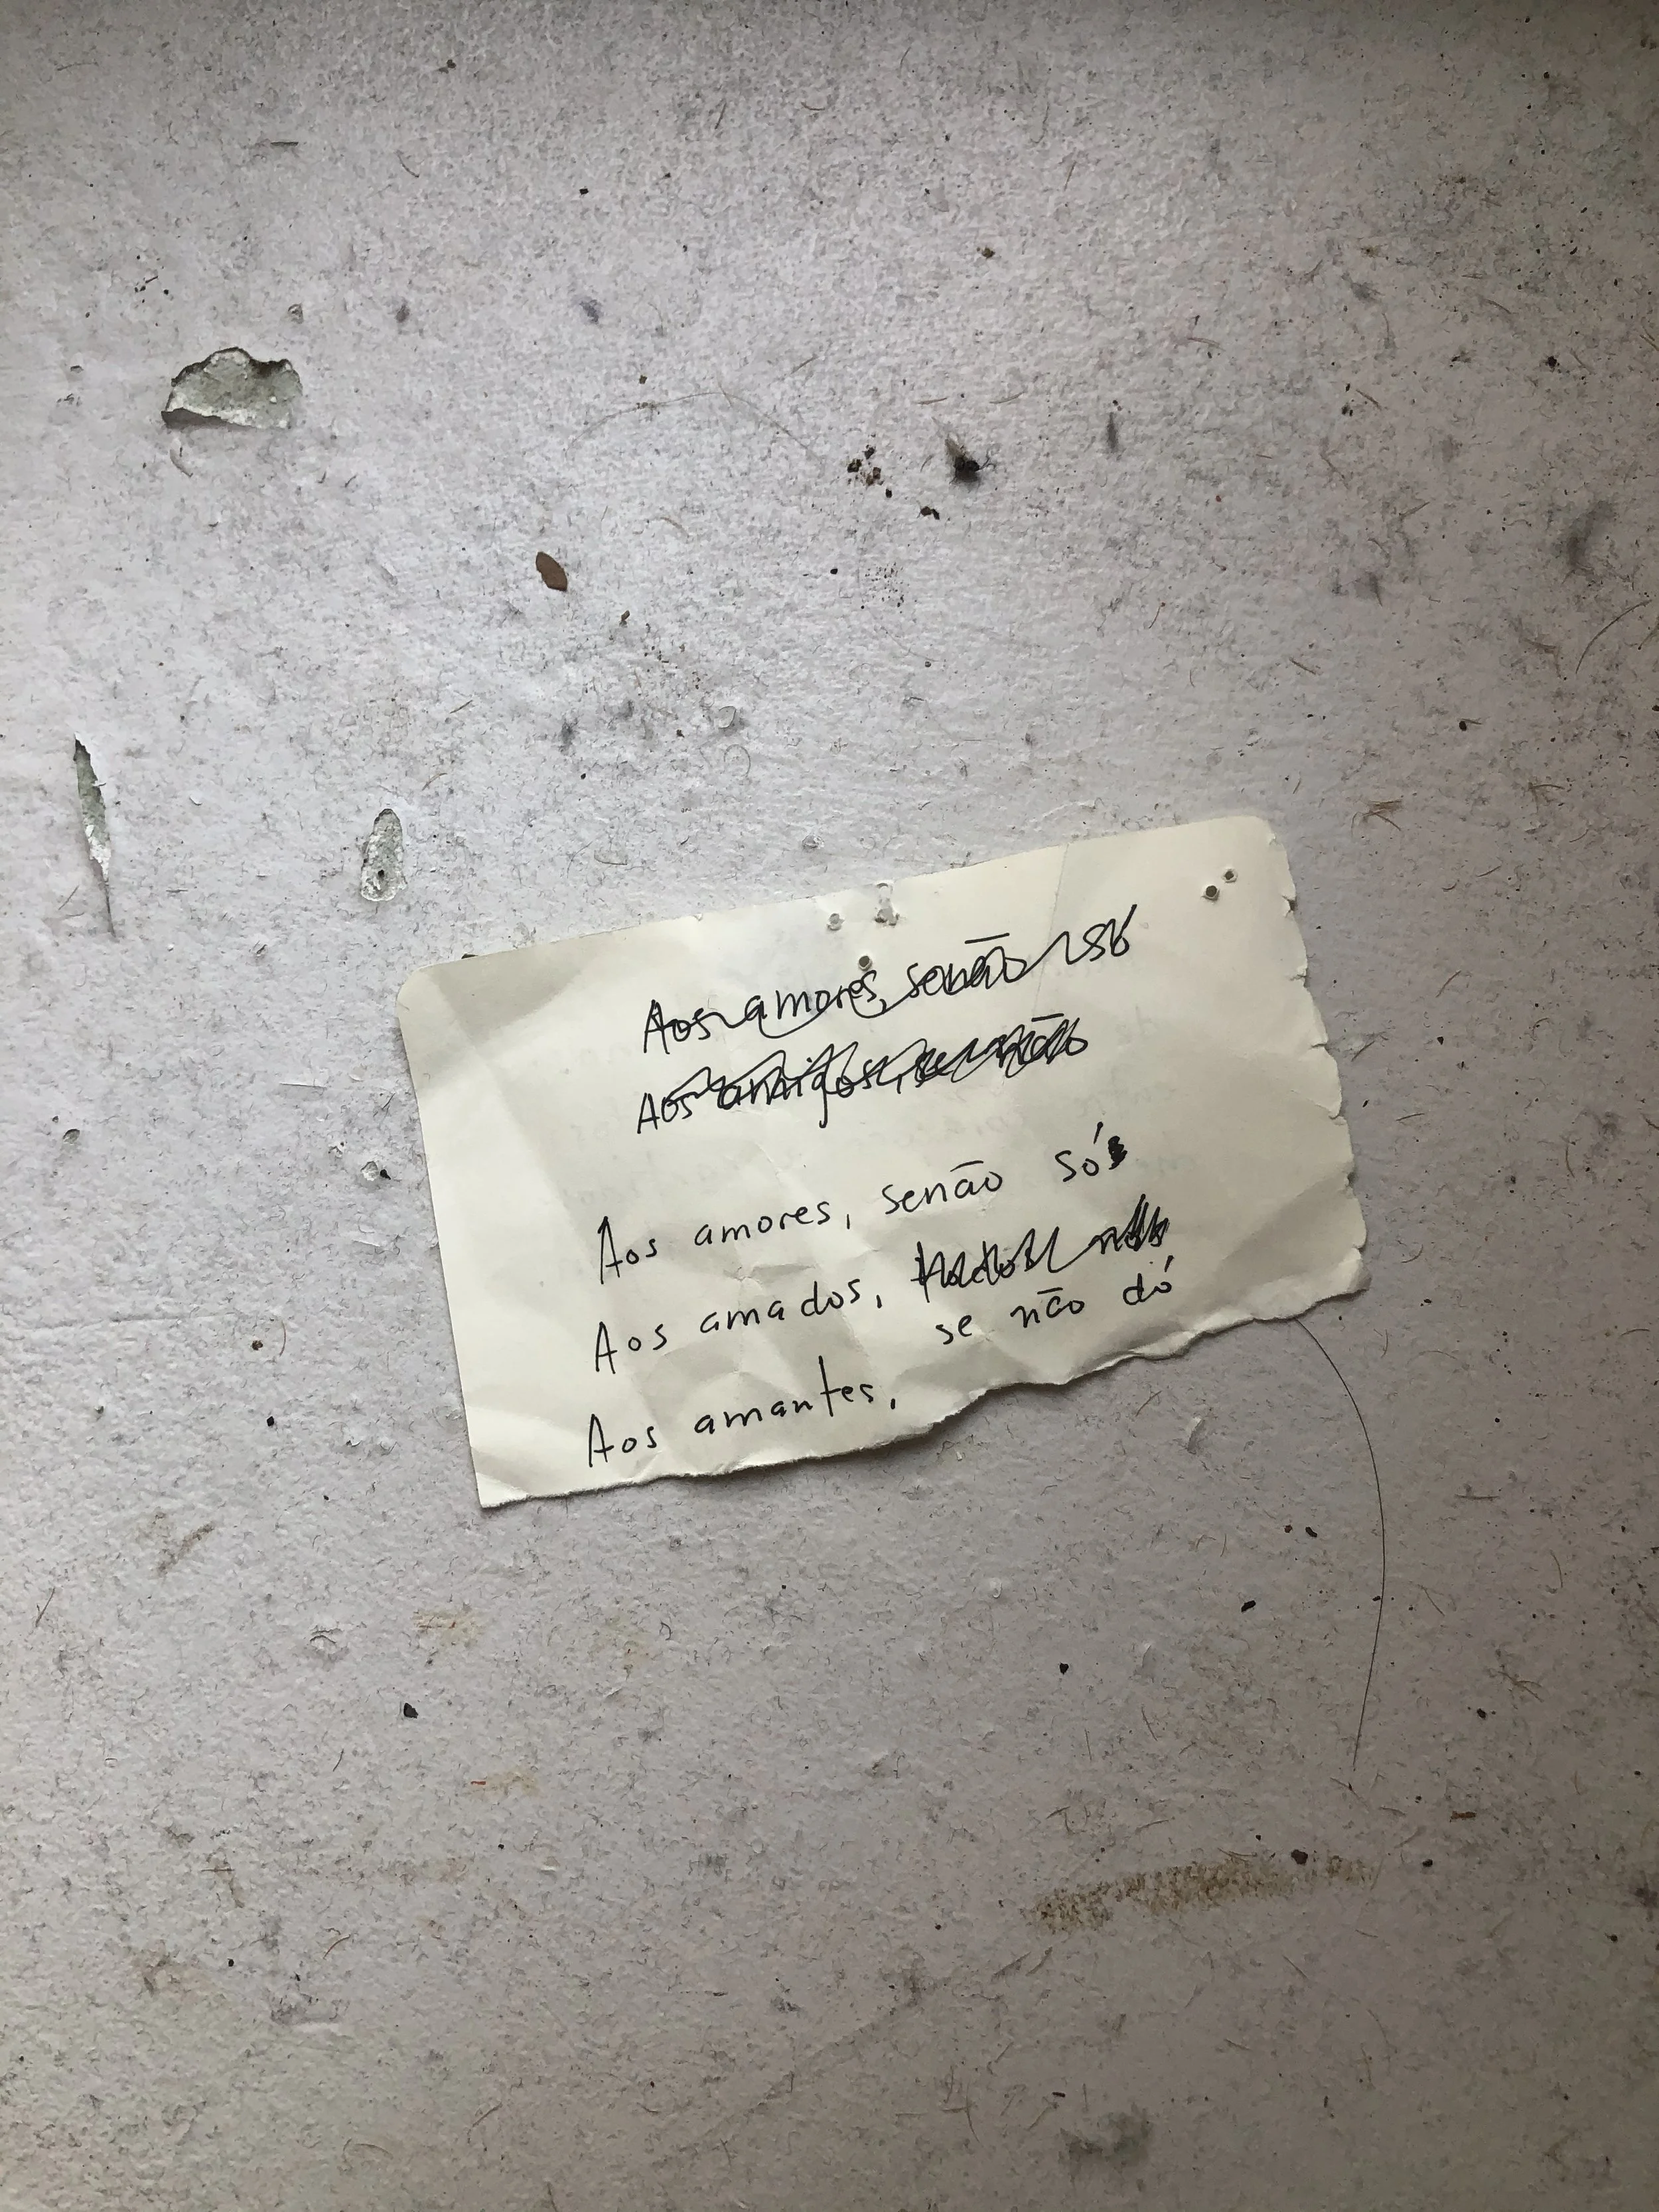 Aos amores, senão só
Aos amigos, se não
Aos amores, senão só
Aos amados,
se não dó
Aos amantes,